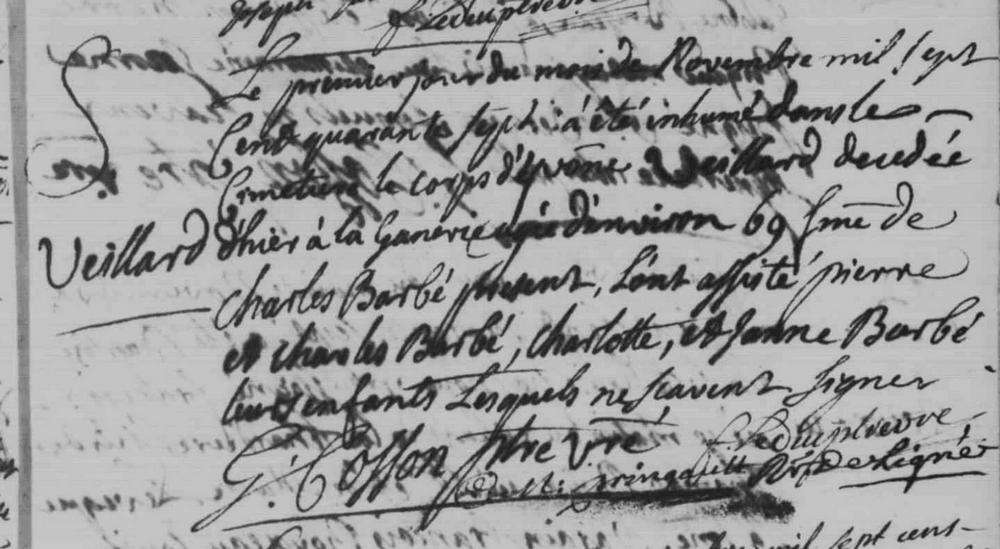 Joseph
f Ledeuplreuve
Le premier jour du mois de Novembre mil sept
Cent quarante sept : a été inhumé dans le
Cimetiere le corps d'yvonne Veillard decedée
Veillard d'hier à la Ganerie agée d'environ 69 fme de
Charles Barbé present, L'ont assisté pierre
et charles Barbé, Charlotte, et Janne Barbé
leurs enfants Lesquels ne scavent signer
G. Cosson ptre vre
de St. f Ledeuplreuve,
Pr. de Ligné
mil sept cens